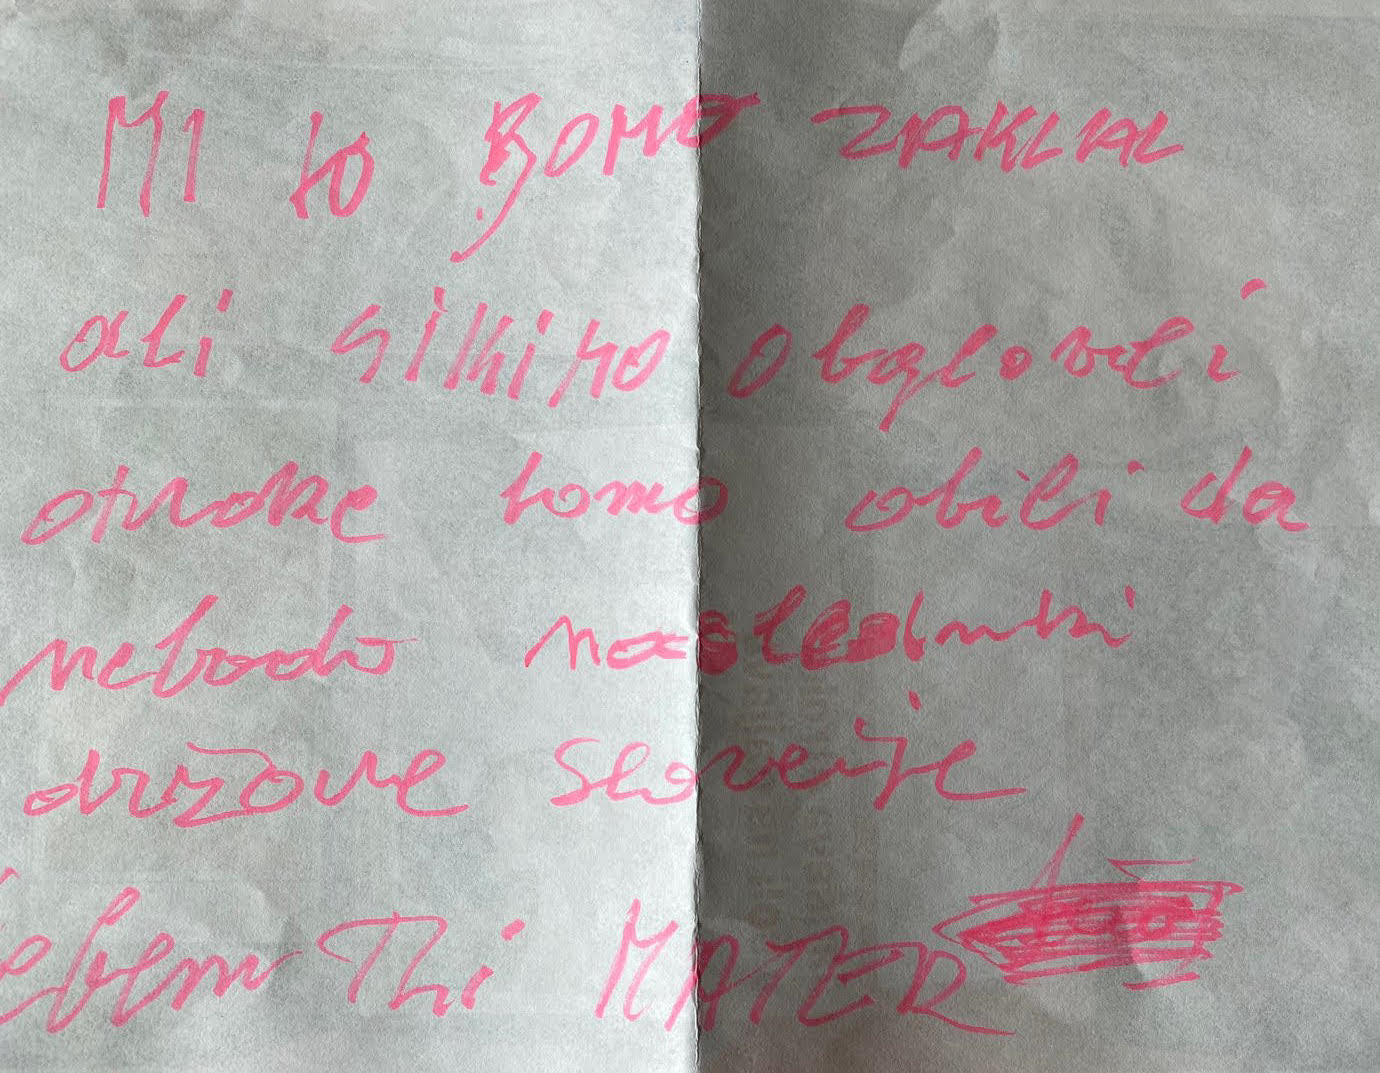 MI to BOMO ZAKLAL
ali silimo obglovili
otroke bomo obili da
nebodo nasledniki
države Slovenije
jebem Thi MATER